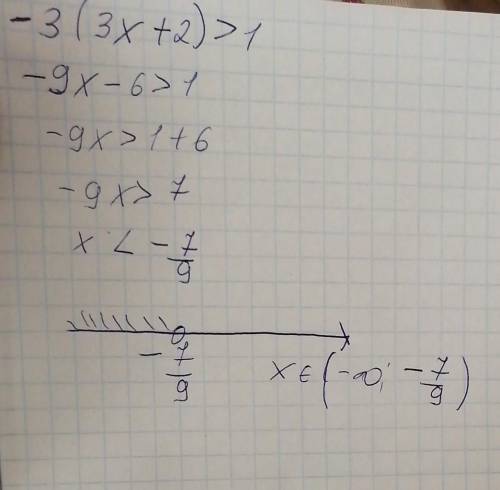 -3(3x+2)>1
-9x-6>1
-9x>1+6
-9x>7
x<-7/9
-7/9
x∈(-∞;-7/9)